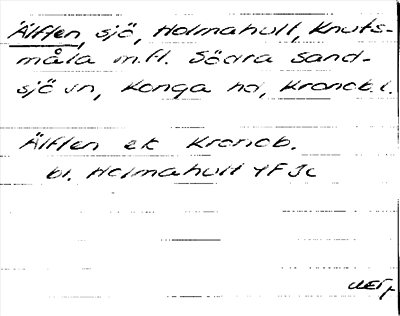 Älften, sjö, Holmahult, Knuts-
måla m.fl. Södra Sand-
sjö sn, Konga hd, Kronob. l.
Älften ek Kronob.
bl. Holmahult 4F3c